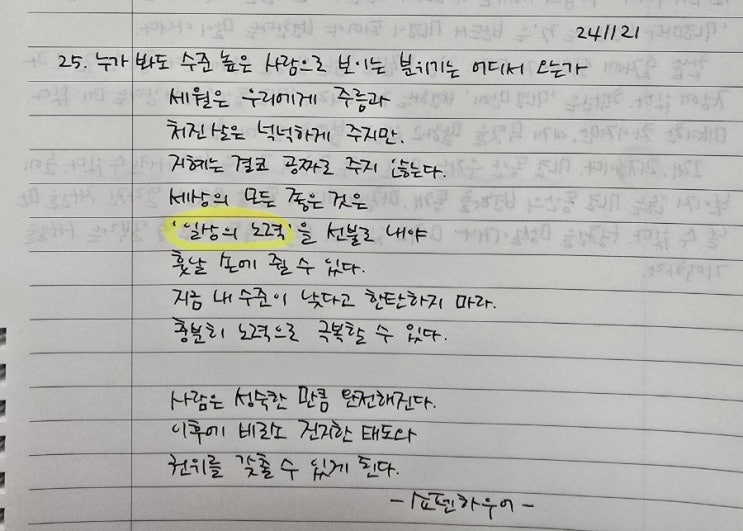 241121
25. 누가 봐도 수준 높은 사람으로 보이는 분위기는 어디서 오는가
세월은 우리에게 주름과
처진 살은 넉넉하게 주지만.
지혜는 결코 공짜로 주지 않는다.
세상의 모든 좋은 것은
'일상의 노력'을 선불로 내야
훗날 손에 쥘 수 있다.
지금 내 수준이 낮다고 한탄하지 마라.
충분히 노력으로 극복할 수 있다.
사람은 성숙한 만큼 완전해진다.
이후에 비로소 진지한 태도와
권위를 갖출 수 있게 된다.
-쇼펜하우어-